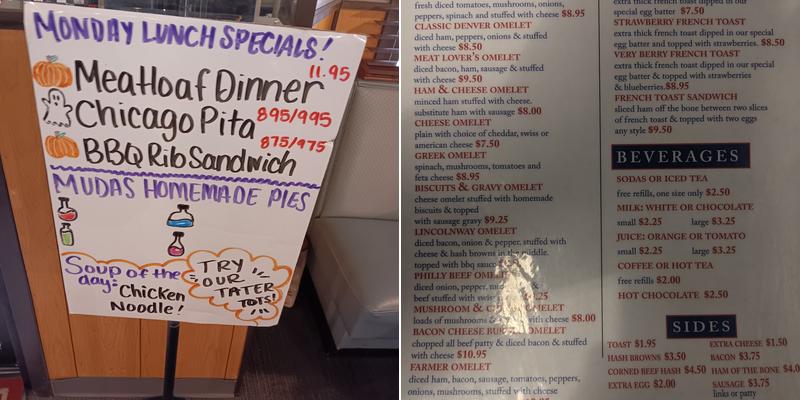 MONDAY LUNCH SPECIALS!
11.95
Meatloaf Dinner
Chicago Pita 895/995
875/975
BBQ Rib Sandwich
MUDAS HOMEMADE PIES
Soup of the
day:
Chicken
Noodle!
TRY
OUR
TATER
TOTS!
fresh diced tomatoes, mushrooms, onions,
peppers, spinach and stuffed with cheese $8.95
CLASSIC DENVER OMELET
diced ham, peppers, onions & stuffed
with cheese $8.50
MEAT LOVER'S OMELET
diced bacon, ham, sausage & stuffed
with cheese $9.50
HAM & CHEESE OMELET
minced ham stuffed with cheese.
substitute ham with sausage $8.00
CHEESE OMELET
plain with choice of cheddar, swiss or
american cheese $7.50
GREEK OMELET
spinach, mushrooms, tomatoes and
feta cheese $8.95
BISCUITS & GRAVY OMELET
cheese omelet stuffed with homemade
biscuits & topped
with sausage gravy $9.25
LINCOLNWAY OMELET
diced bacon, onion & pepper, stuffed with
cheese & hash browns in the middle.
topped with bbq
PHILLY BEEF OMELET
diced onion, pepper,
beef stuffed with
MUSHROOM & OMELET
loads of mushrooms & with cheese $8.00
BACON CHEESE OMELET
chopped all beef patty & diced bacon & stuffed
with cheese $10.95
FARMER OMELET
diced ham, bacon, sausage, tomatoes, peppers,
onions, mushrooms, stuffed with cheese
extra thick french toast dipped in our
special egg batter $7.50
STRAWBERRY FRENCH TOAST
extra thick french toast dipped in our special
egg batter and topped with strawberries. $8.50
VERY BERRY FRENCH TOAST
extra thick french toast dipped in our special
egg batter & topped with strawberries
& blueberries.$8.95
FRENCH TOAST SANDWICH
sliced ham off the bone between two slices
of french toast & topped with two eggs
any style $9.50
BEVERAGES
SODAS OR ICED TEA
free refills, one size only $2.50
MILK: WHITE OR CHOCOLATE
small $2.25 large $3.25
JUICE: ORANGE OR TOMATO
small $2.25 large $3.25
COFFEE OR HOT TEA
free refills $2.00
HOT CHOCOLATE $2.50
SIDES
TOAST $1.95 EXTRA CHEESE $1.50
HASH BROWNS $3.50 BACON $3.75
CORNED BEEF HASH $4.50 HAM OF THE BONE $4.0
EXTRA EGG $2.00 SAUSAGE $3.75
links or patty